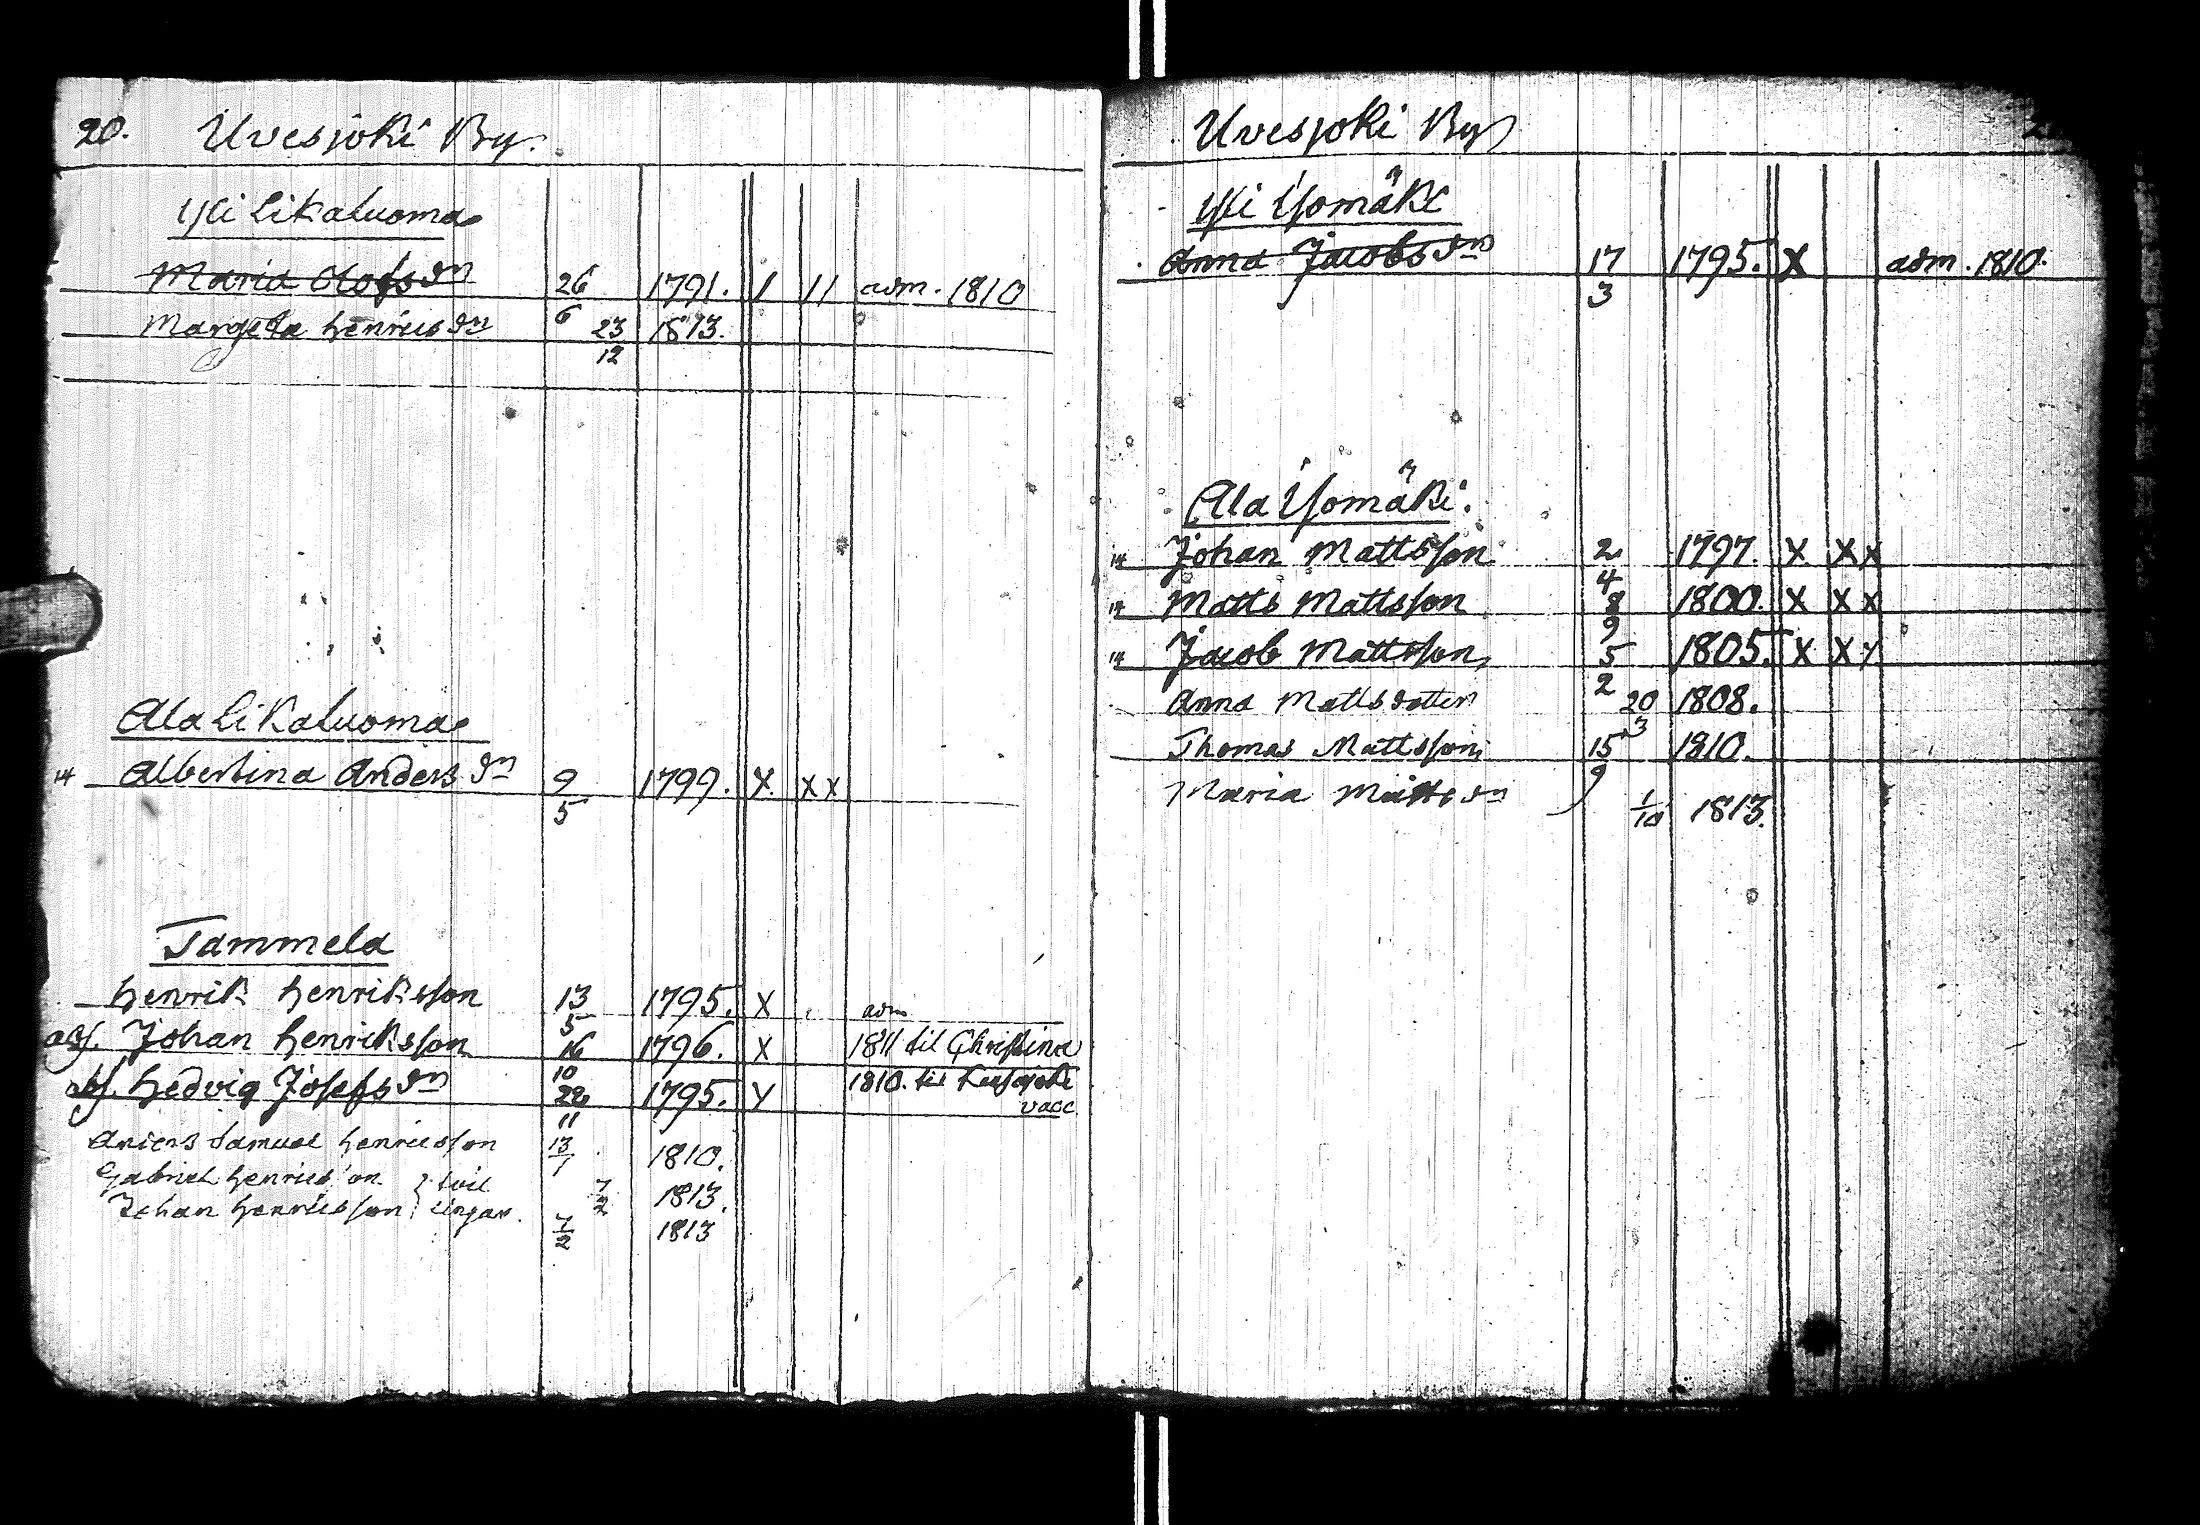 20. Uvesjoki By.
Yli Likaluoma
Maria Olofsdn 26 1791. 1 11 adm. 1810
6
Margeta Henricsdn 23 1813.
12
Ala Likaluoma
14 Albertina Andersdn 9 1799. X. XX
5
Tammela
Henrik Henriksson 13 1795. X adm
5
Johan Henriksson 16 1796. X 1811 til Christina
10
Hedvig Josefsdn 22 1795. Y 1810. til
11 vacc
Anders Samuel Henricsson 13/7 1810.
Gabriel Henricsson 7/2 1813.
Johan Henricsson 7/2 1813
Uvesjoki By
Yli Ysomäki
Anna Jacobsdn 17 1795. X adm. 1810.
3
Ala Ysomäki.
14 Johan Mattsson 2 1797. X XX
4
14 Matts Mattsson 8 1800. X XX
9
14 Jacob Mattsson 5 1805. X XY
2
Anna Mattsdotter 20 1808.
3
Thomas Mattsson 15 1810.
9
Maria Mattsdn 1/10 1813.